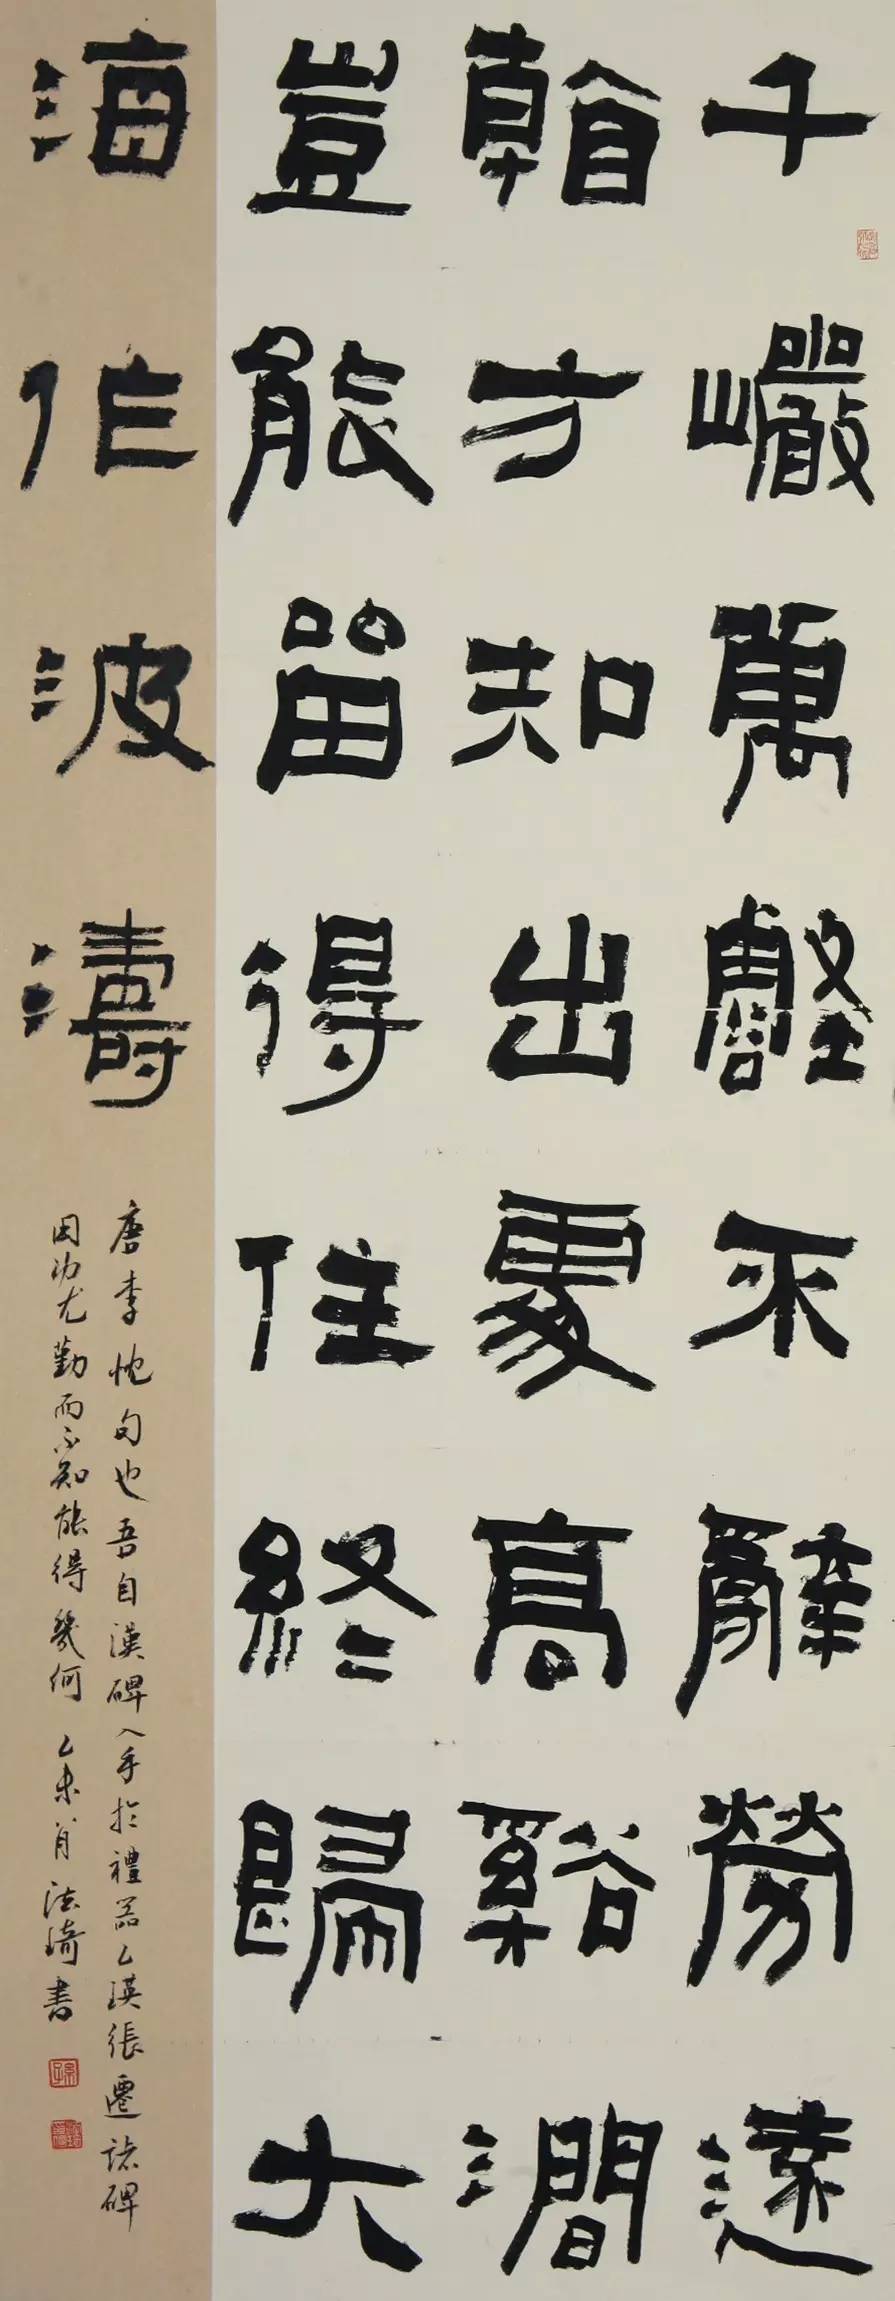 千巖萬壑不辭勞遠
看方知出處高谿澗
豈能留得住終歸大
海作波濤
唐李忱句也吾自漢碑入手於禮器乙瑛張遷諸碑
用功尤勤而不知能得幾何 乙未八月法琦書